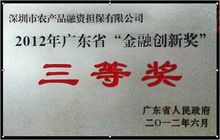 深圳市农产品融资担保有限公司
2012年广东省“金融创新奖”
三等奖
广东省人民政府
二〇一二年六月